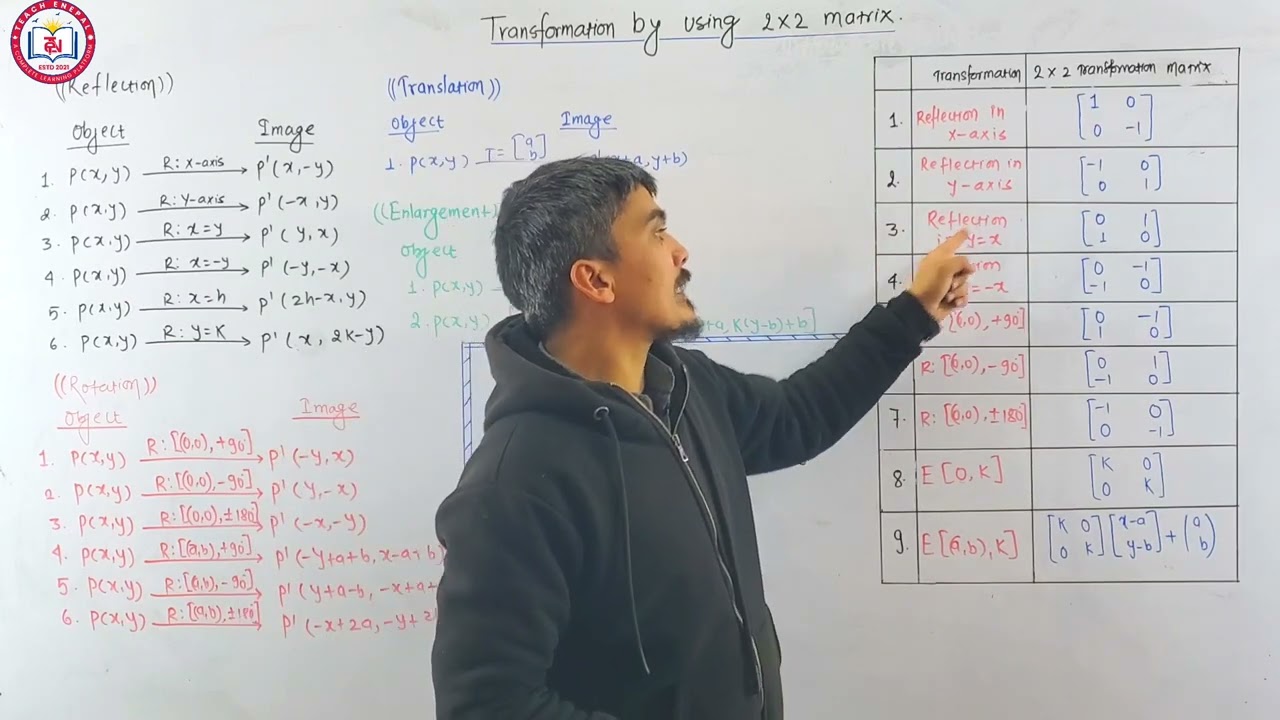 TEACH ENEPAL
ESTD 2021
A COMPLETE LEARNING PLATFORM
Transformation by using 2x2 matrix.
((Reflection))
Object Image
1. P(x,y) R: x-axis P'(x,-y)
2. P(x,y) R: y-axis P'(-x,y)
3. P(x,y) R: x=y P'(y,x)
4. P(x,y) R: x=-y P'(-y,-x)
5. P(x,y) R: x=h P'(2h-x,y)
6. P(x,y) R: y=K P'(x, 2k-y)
((Rotation))
Object Image
1. P(x,y) R:[(0,0),+90°] P'(-y,x)
2. P(x,y) R:[(0,0),-90°] P'(y,-x)
3. P(x,y) R:[(0,0),±180°] P'(-x,-y)
4. P(x,y) R:[(a,b),+90°] P'(-y+a+b, x-a+b)
5. P(x,y) R:[(a,b),-90°] P'(y+a-b, -x+a+
6. P(x,y) R:[(a,b),±180°] P'(-x+2a,-y+2
((Translation))
Object Image
1. P(x,y) T=[a
b] +a,y+b)
((Enlargement
Object
1. P(x,y)
2. P(x,y) +a, K(y-b)+b]
Transformation 2x2 Transformation matrix
1. Reflection in x-axis [1 0
0 -1]
2. Reflection in y-axis [-1 0
0 1]
3. Reflection y=x [0 1
1 0]
4. =-x [0 -1
-1 0]
[(0,0),+90°] [0 -1
1 0]
R:[(0,0),-90°] [0 1
-1 0]
7. R:[(0,0),±180°] [-1 0
0 -1]
8. E[0,K] [K 0
0 K]
9. E[(a,b),K] [K 0
0 K][x-a
y-b]+(a
b)